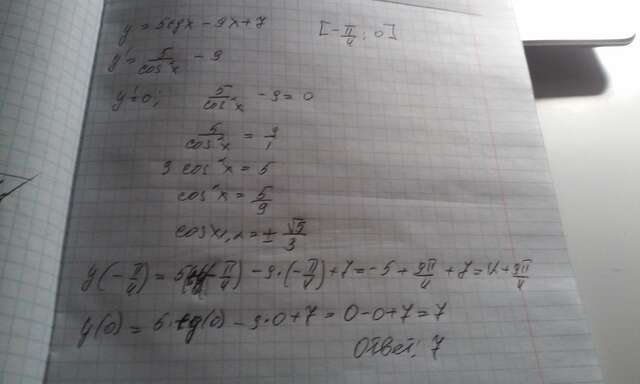 y = 5tgx - 9x + 7 [-π/4; 0]
y' = 5/cos²x - 9
y' = 0; 5/cos²x - 9 = 0
5/cos²x = 9/1
9 cos²x = 5
cos²x = 5/9
cosx₁,₂ = ± √5/3
y(-π/4) = 5tg(-π/4) - 9·(-π/4) + 7 = -5 + 9π/4 + 7 = 2 + 9π/4
y(0) = 5·tg(0) - 9·0 + 7 = 0 - 0 + 7 = 7
Ответ: 7